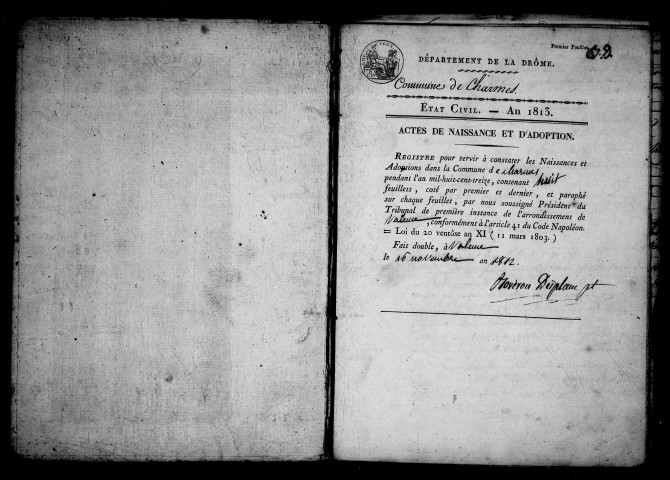 Premier Feuillet
DÉPARTEMENT DE LA DRÔME.
Commune de Charmes
ETAT CIVIL. — AN 1813.
ACTES DE NAISSANCE ET D'ADOPTION.
REGISTRE pour servir à constater les Naissances et
Adoptions dans la Commune de Charmes
pendant l'an mil-huit-cent-treize, contenant huit
feuillets, coté par premier et dernier, et paraphé
sur chaque feuillet, par nous soussigné Président du
Tribunal de première instance de l'arrondissement de
Valence, conformément à l'article 41 du Code Napoléon.
= Loi du 20 ventôse an XI ( 11 mars 1803. )
Fait double, à Valence
le 16 novembre an 1812.